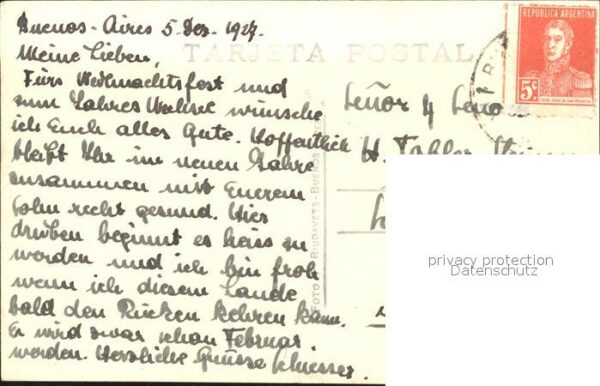 Buenos-Aires 5 Dez. 1927.
TARJETA POSTAL
REPUBLICA ARGENTINA
5c
Meine Lieben,
Fürs Weihnachtsfest und
zum Jahres Wechsel wünsche
ich Euch alles Gute. Hoffentlich
bleibt Ihr im neuen Jahre
zusammen mit Euerem
Sohn recht gesund. Hier
drüben beginnt es heiss zu
werden und ich bin froh
wenn ich diesem Lande
bald den Rücken kehren kann.
Es wird zwar schon Februar
werden. Herzliche Grüsse
Señor y
H.
FOTO RIUDAVETS-BUENOS
privacy protection
Datenschutz